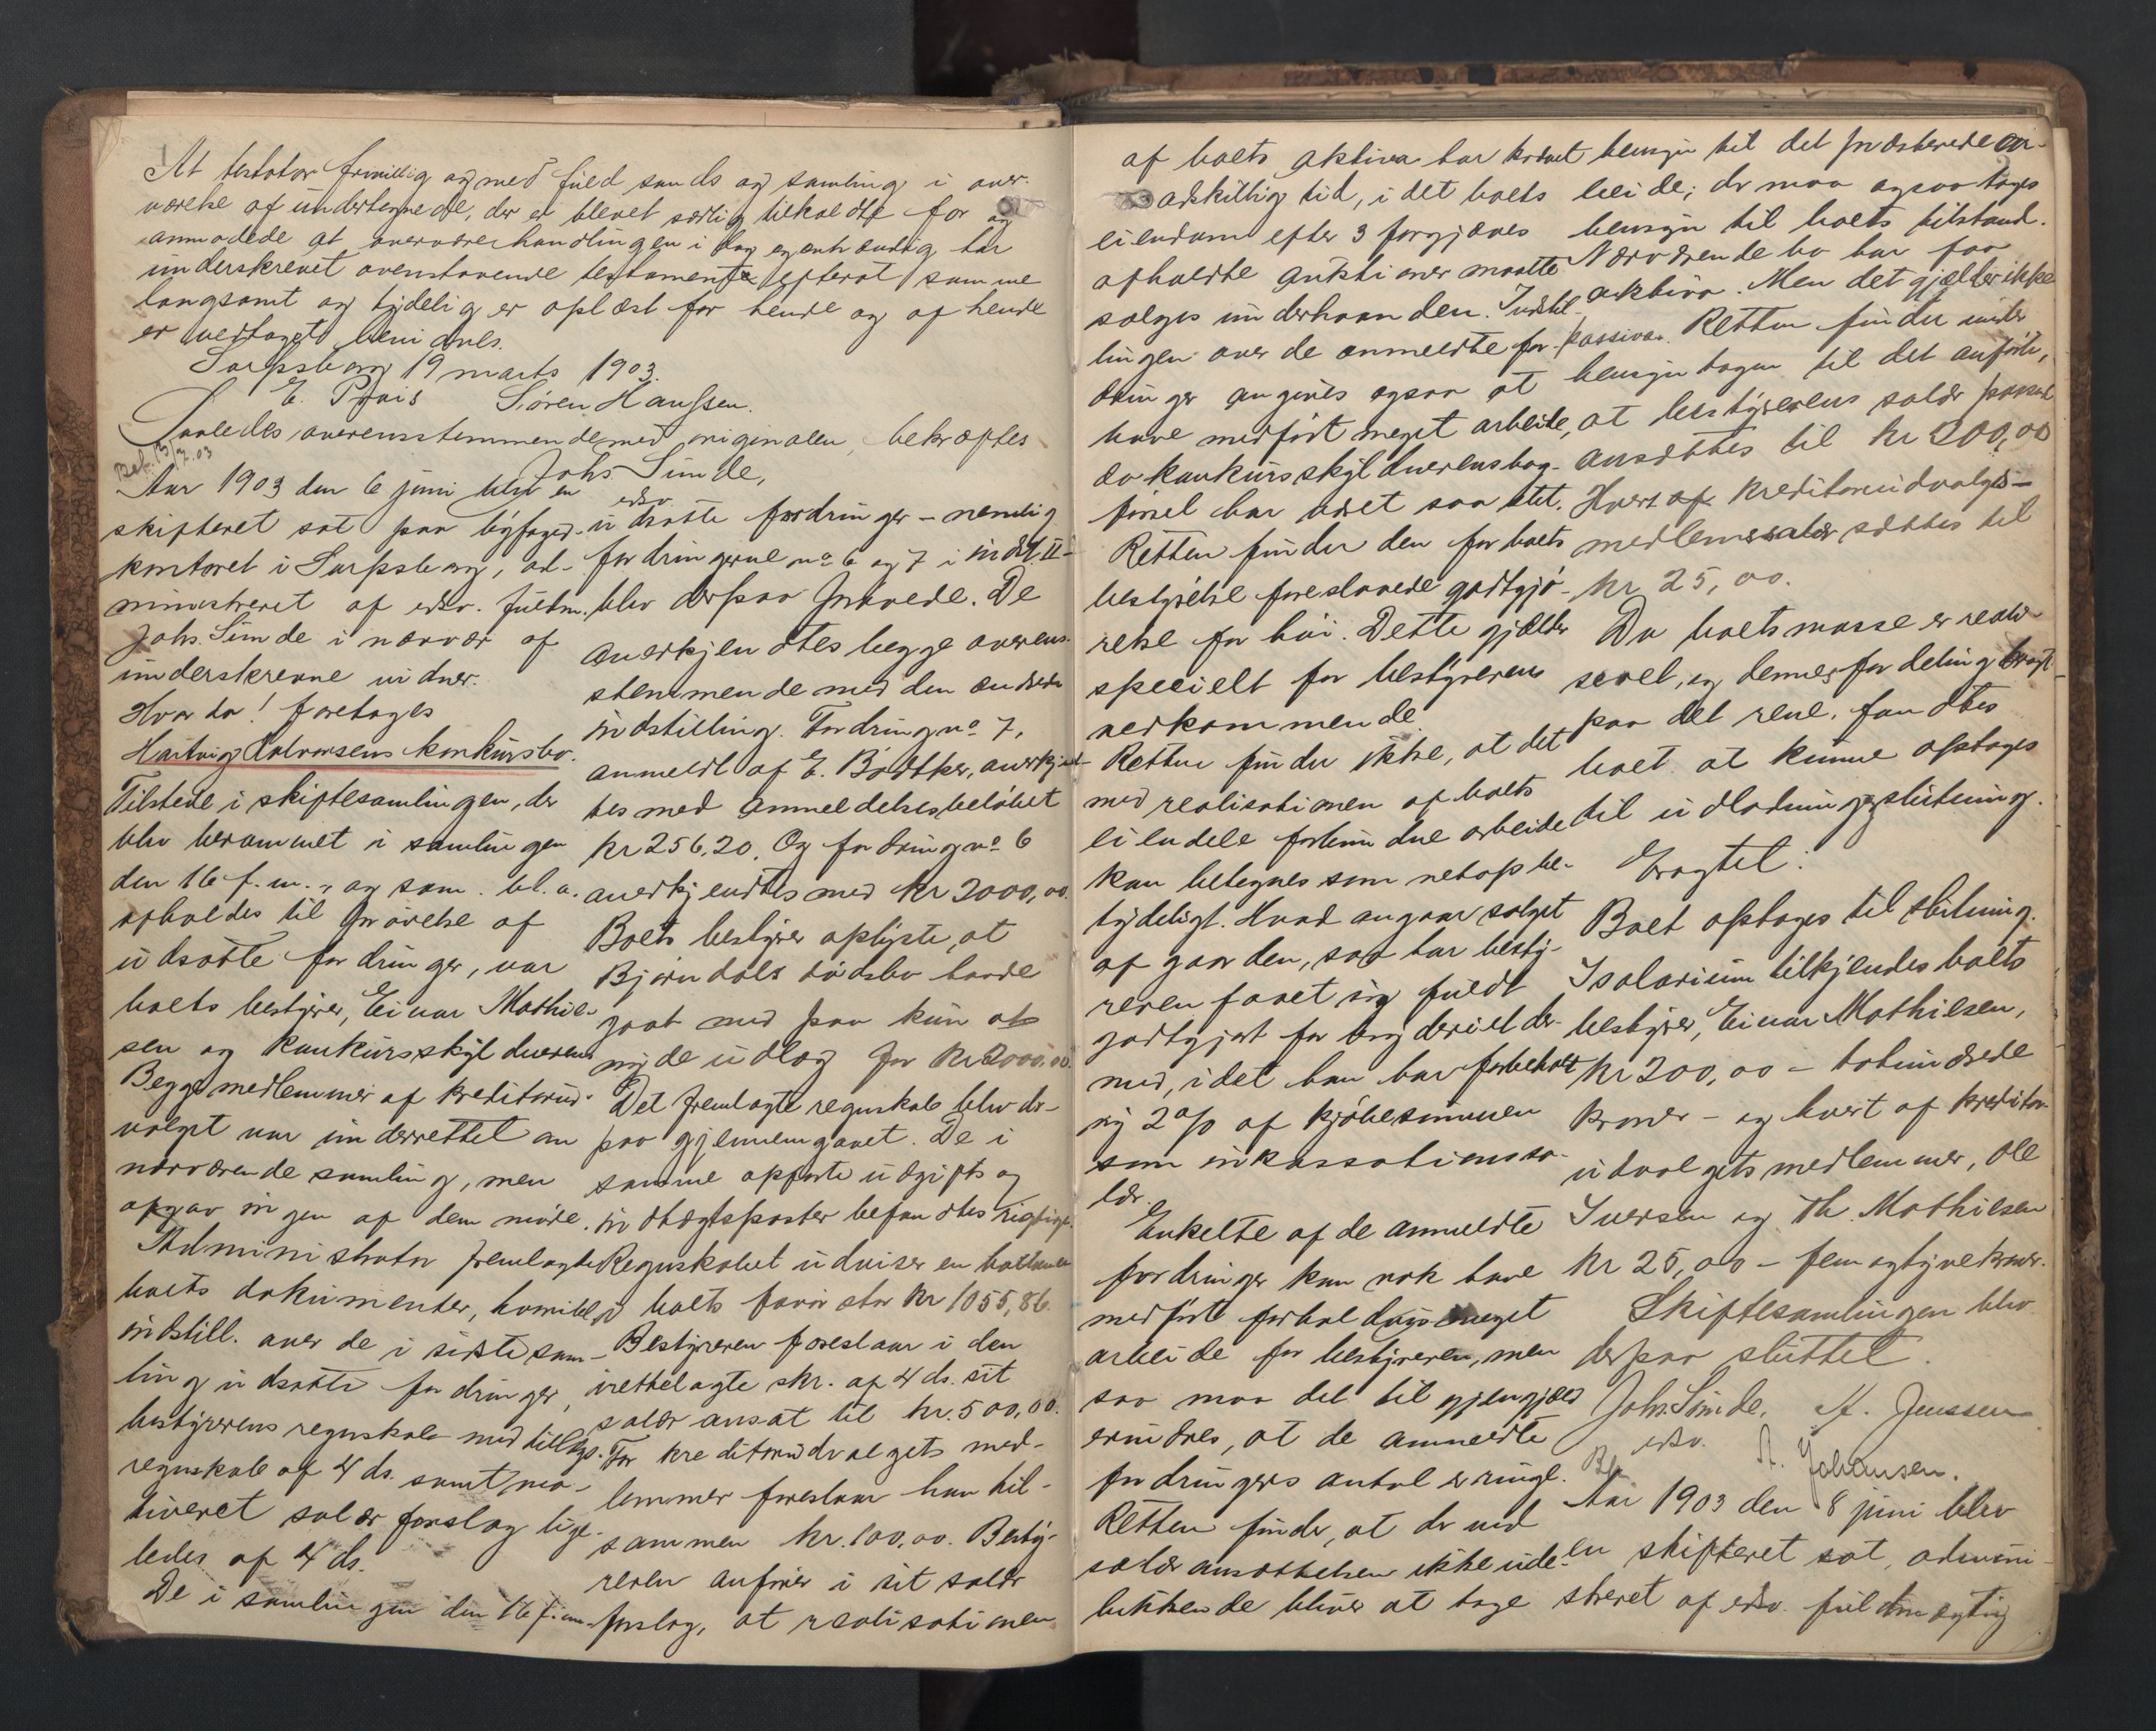 At testator frivillig og med fuld sands og samling i over-
værelse af undertegnede, der er blevet særlig tilkaldte for og
anmodede at overvære handlingen i dag egenhændig har
underskrevet ovenstaaende testamente efterat samme
langsomt og tydelig er oplæst for hende og af hende
er vedtaget bevidnes.
Sarpsborg 19 marts 1903.
E. Søren Hanssen.
Saaledes overensstemmende med originalen, bekræftes
Johs Sunde,
edsv.
Aar 1903 den 6 juni blev en
skifteret sat paa byfoged-
kontoret i Sarpsborg, ad-
ministreret af edsv. fuldm.
Johs. Sunde i nærvær af
underskrevne vidner.
Hvor da! foretages
Hartvig Halvorsens konkursbo.
Tilstede i skiftesamlingen, der
blev berammet i samlingen
den 16 f.m., og som bl.a.
afholdes til prøvelse af
udsatte fordringer, var
boets bestyrer, Einar Mathie-
sen og konkursskyldneren.
Begge medlemmer af kreditorud-
valget var underrettet om
nærværende samling, men
ingen af dem møde.
Administrator fremlagde
boets dokumenter, hvoribl.
indstill. over de i sidste sam-
ling udsatte fordringer,
bestyrerens regnskab med tillægs-
regnskab af 4 ds. samt mo-
tiveret salærforslag lige-
ledes af 4 ds.
De i samlingen den 16 f.m.
udsatte fordringer – nemlig
fordringerne no 6 og 7 i indst. II –
blev derpaa prøvede. De
anerkjendtes begge overens-
stemmende med den ændrede
indstilling. Fordring no 7,
anmeldt af E. Bødtker, anerkjend-
tes med anmeldelsesbeløbet
kr 256,20. Og fordring no 6
anerkjendtes med kr 2000,00.
Boets bestyrer oplyste, at
Bjørndals dødsbo havde
gaat med paa kun at
nyde udlæg for kr 2000,00.
Det fremlagte regnskab blev der-
paa gjennemgaaet. De i
samme opførte udgifts og
indtægtsposter befandtes rigtige.
Regnskabet udviser en
i boets favør stor kr 1055,86.
Bestyreren foreslaar i den
irettelagte skr. af 4 ds. sit
salær ansat til kr. 500,00.
For kreditorudvalgets med-
lemmer foreslaar han til-
sammen kr. 100,00. Besty-
reren anfører i sit salær
forslag, at realisationen
af boets aktiva har krævet
adskillig tid, i det boets
eiendom efter 3 forgjæves
afholdte auktioner maatte
sælges underhaanden. Indstil-
lingen over de anmeldte for-
dringer angives ogsaa at
have medført meget arbeide,
da konkursskyldnerens bog-
førsel har været saa slet.
Retten finder den for boets
bestyrelse foreslaaede godtgjø-
relse for høi. Dette gjælder
specielt for bestyrerens
vedkommende.
Retten finder ikke, at det
med realisationen af boets
eiendele forbundne arbeide
kan betegnes som netop be-
tydeligt. Hvad angaar salget
af gaarden, saa har besty-
reren faaet sig fuldt
godtgjort for bryderiet der-
med, idet han har forbeholdt
sig 2% af kjøbesummen
som inkassationssa-
lær.
Enkelte af de anmeldte
fordringer kan nok have
medført forholdsvis meget
arbeide for bestyreren, men
saa maa det til gjengjæld
erindres, at de anmeldte
fordringers antal er ringe.
Retten finder, at der ved
salær ansættelsen ikke ude-
lukkende bliver at tage
hensyn til det præsterede ar-
beide; der maa ogsaa tages
hensyn til boets tilstand.
Nærværende bo har faa
aktiva. Men det gjælder ikke
passiva. Retten finder under
hensyntagen til det anførte,
at bestyrerens salær passende
ansættes til kr 200,00
Hvert af kreditorudvalgs-
medlemmers salær sættes til
kr 25,00.
Da boets masse er reali-
seret, og dennes fordeling bragt
paa det rene, fandtes
boet at kunne optages
til udlodningsslutning.
Eragtet:
Boet optages til slutning.
I salarium tilkjendes boets
bestyrer, Einar Mathiesen,
kr 200,00 – tohundrede
kroner – og hvert af kreditor-
udvalgets medlemmer, Ole
Iversen og Th. Mathiesen
kr 25,00 – fem og tyve kroner.
Skiftesamlingen blev
derpaa sluttet.
Johs. Sunde, A. Jenssen
edsv. A. Johansen.
Aar 1903 den 8 juni blev
en skifteret sat, admini-
streret af edsv. fuldmægtig